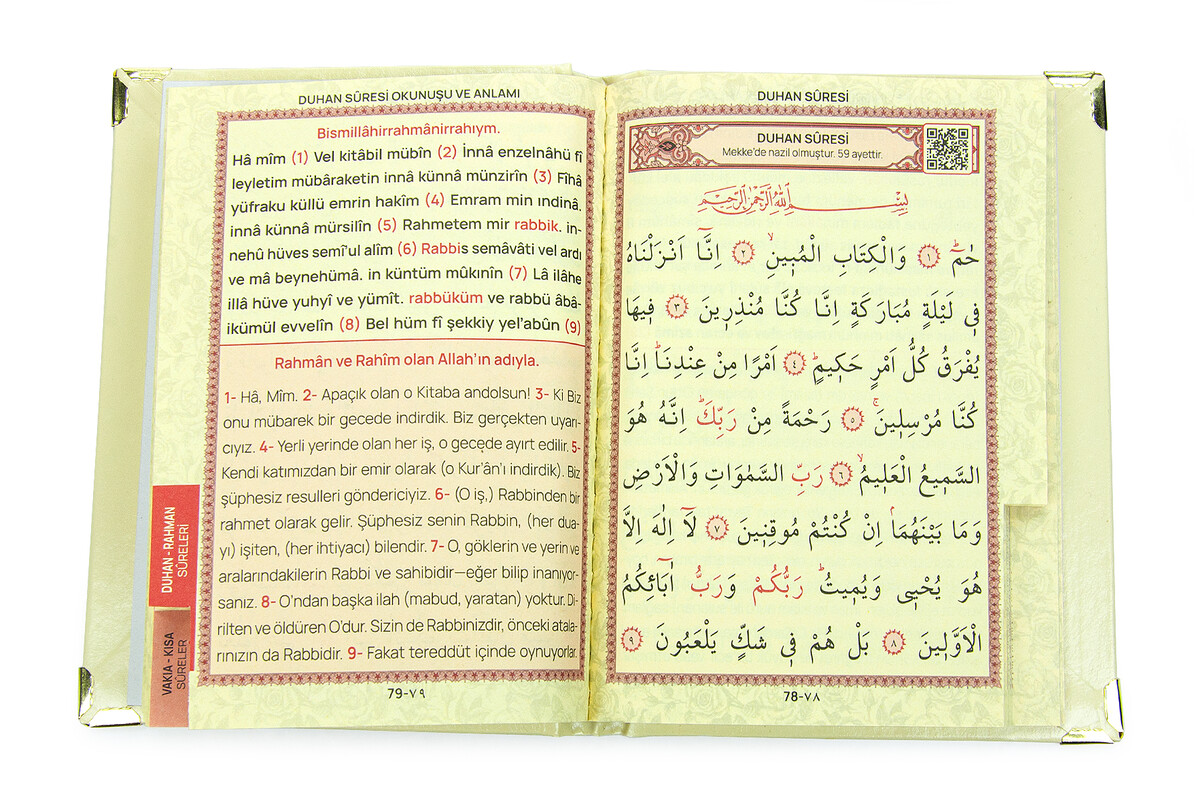 DUHAN SÛRESİ
DUHAN SÛRESİ
Mekke'de nazil olmuştur. 59 ayettir.
بِسْمِ اللّٰهِ الرَّحْمٰنِ الرَّحِيمِ
حٰمٓۜ ﴿١﴾ وَالْكِتَابِ الْمُب۪ينِۙ ﴿٢﴾ اِنَّٓا اَنْزَلْنَاهُ
ف۪ي لَيْلَةٍ مُبَارَكَةٍ اِنَّا كُنَّا مُنْذِر۪ينَ ﴿٣﴾ ف۪يهَا
يُفْرَقُ كُلُّ اَمْرٍ حَك۪يمٍۜ ﴿٤﴾ اَمْرًا مِنْ عِنْدِنَاۜ اِنَّا
كُنَّا مُرْسِل۪ينَۚ ﴿٥﴾ رَحْمَةً مِنْ رَبِّكَۜ اِنَّهُ هُوَ
السَّم۪يعُ الْعَل۪يمُۙ ﴿٦﴾ رَبِّ السَّمٰوَاتِ وَالْاَرْضِ
وَمَا بَيْنَهُمَاۢ اِنْ كُنْتُمْ مُوقِن۪ينَ ﴿٧﴾ لَٓا اِلٰهَ اِلَّا
هُوَ يُحْي۪ي وَيُم۪يتُۜ رَبُّكُمْ وَرَبُّ اٰبَٓائِكُمُ
الْاَوَّل۪ينَ ﴿٨﴾ بَلْ هُمْ ف۪ي شَكٍّ يَلْعَبُونَ ﴿٩﴾
78-٧٨
DUHAN SÛRESİ OKUNUŞU VE ANLAMI
Bismillâhirrahmânirrahıym.
Hâ mîm (1) Vel kitâbil mübîn (2) İnnâ enzelnâhü fî
leyletim mübâraketin innâ künnâ münzirîn (3) Fîhâ
yüfraku küllü emrin hakîm (4) Emram min ındinâ.
innâ künnâ mürsilîn (5) Rahmetem mir rabbik. in-
nehû hüves semî'ul alîm (6) Rabbis semâvâti vel ardı
ve mâ beynehümâ. in küntüm mûkınîn (7) Lâ ilâhe
illâ hüve yuhyî ve yümît. rabbüküm ve rabbü âbâ-
ikümül evvelîn (8) Bel hüm fî şekkiy yel'abûn (9)
Rahmân ve Rahîm olan Allah'ın adıyla.
1- Hâ, Mîm. 2- Apaçık olan o Kitaba andolsun! 3- Ki Biz
onu mübarek bir gecede indirdik. Biz gerçekten uyarı-
cıyız. 4- Yerli yerinde olan her iş, o gecede ayırt edilir. 5-
Kendi katımızdan bir emir olarak (o Kur'ân'ı indirdik). Biz
şüphesiz resulleri göndericiyiz. 6- (O iş,) Rabbinden bir
rahmet olarak gelir. Şüphesiz senin Rabbin, (her dua-
yı) işiten, (her ihtiyacı) bilendir. 7- O, göklerin ve yerin ve
aralarındakilerin Rabbi ve sahibidir—eğer bilip inanıyor-
sanız. 8- O'ndan başka ilah (mabud, yaratan) yoktur. Di-
rilten ve öldüren O'dur. Sizin de Rabbinizdir, önceki atala-
rınızın da Rabbidir. 9- Fakat tereddüt içinde oynuyorlar.
79-٧٩
DUHAN - RAHMAN
SÛRELERİ
VAKIA - KISA
SÛRELER